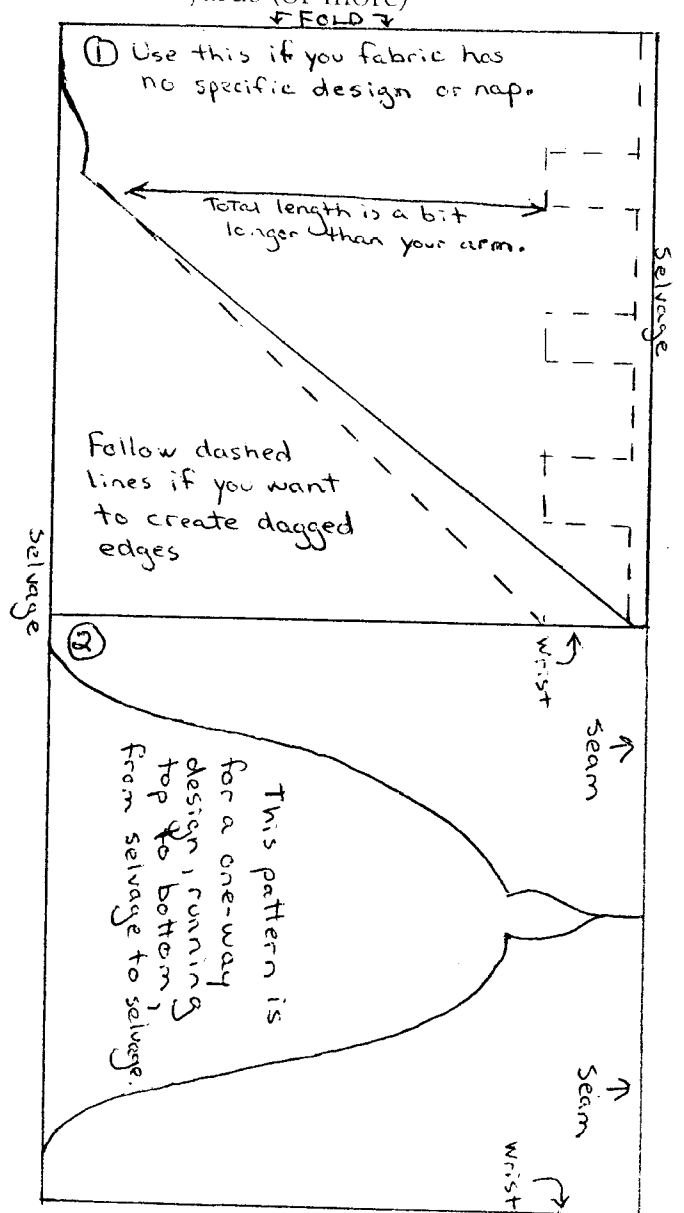 (or more)
FOLD
① Use this if you fabric has
no specific design or nap.
Total length is a bit
longer than your arm.
Selvage
Follow dashed
lines if you want
to create dagged
edges
Selvage
②
Wrist
Seam
This pattern is
for a one-way
design, running
top to bottom,
from selvage to selvage.
Seam
Wrist